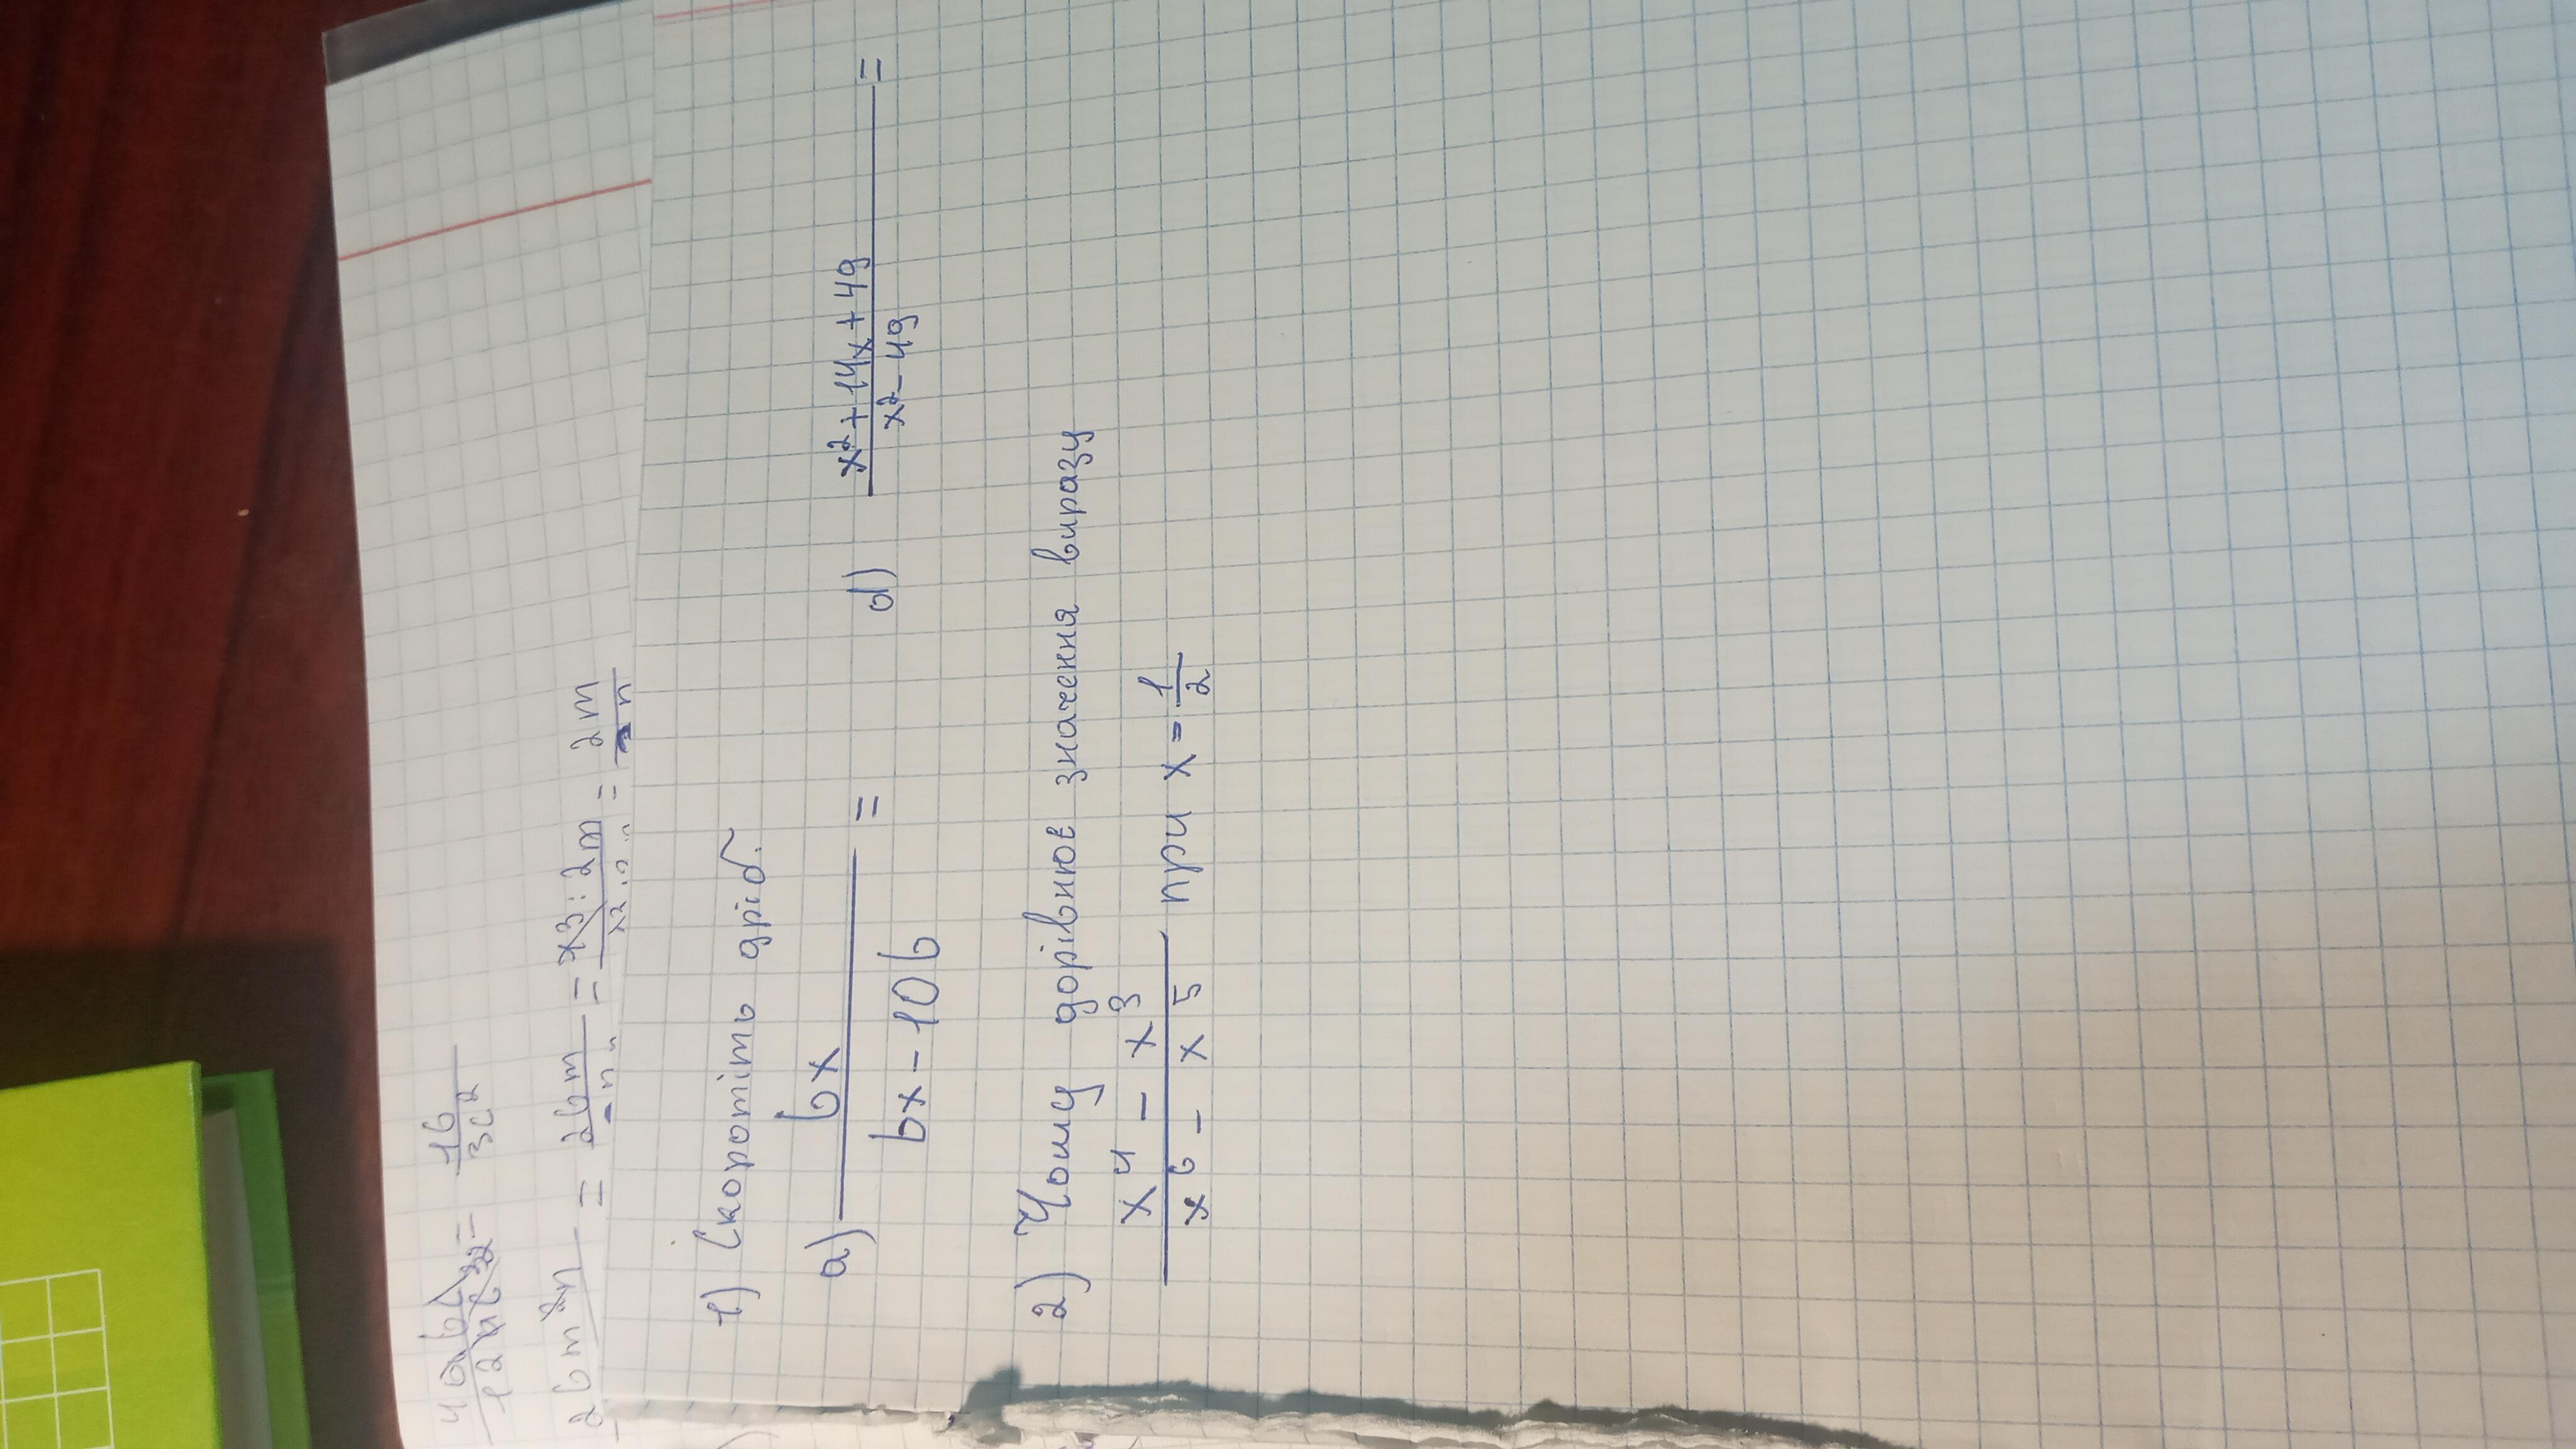 4abc / 12 = 1b / 3c²
= 2bm / = x3:2m / = 2m / n
1) Скоротіть дріб.
а) bx / bx - 10b = d) x² + 14x + 49 / x² - 49 =
2) Чому дорівнює значення виразу
x⁴ - x³ / x⁶ - x⁵ при x = 1/2